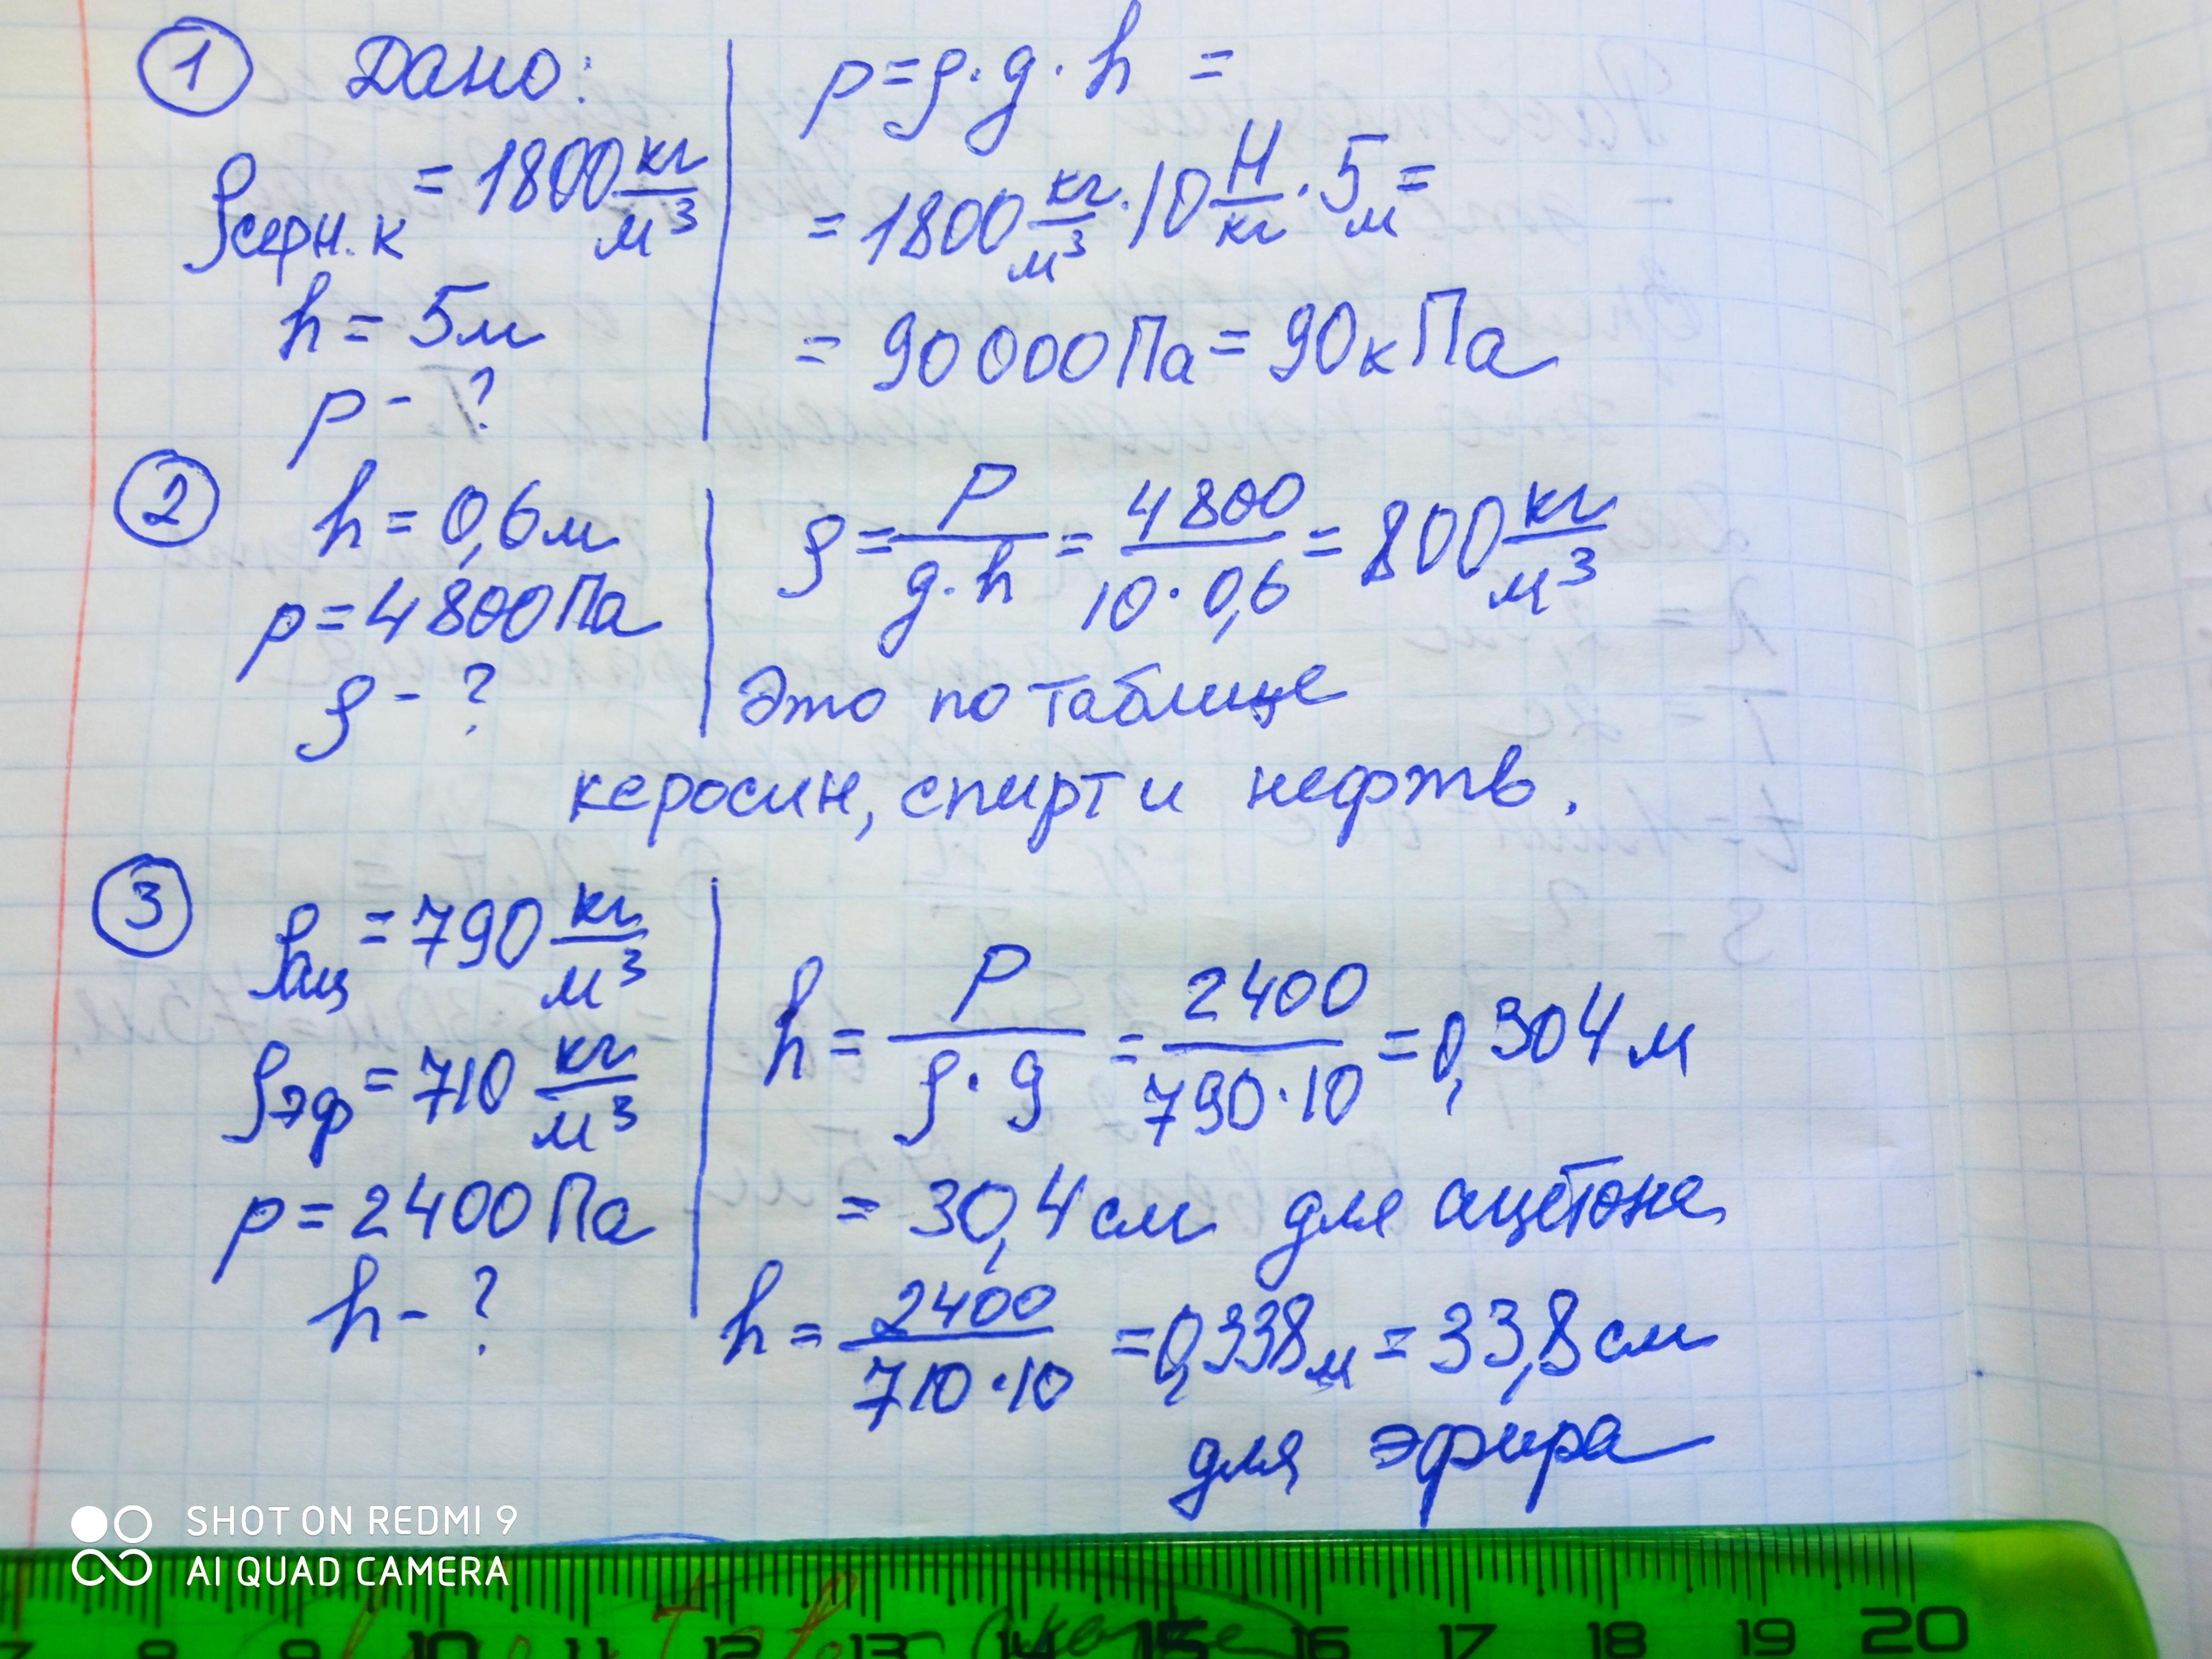 ① Дано:
ρсерн.к = 1800 кг/м³
h = 5м
p - ?
p = ρ · g · h =
= 1800 кг/м³ · 10 Н/кг · 5м =
= 90 000 Па = 90 кПа
② h = 0,6м
p = 4800 Па
ρ - ?
ρ = P/(g · h) = 4800/(10 · 0,6) = 800 кг/м³
Это по таблице
керосин, спирт и нефть.
③ ρац = 790 кг/м³
ρэф = 710 кг/м³
p = 2400 Па
h - ?
h = P/(ρ · g) = 2400/(790 · 10) = 0,304 м
= 30,4 см для ацетона
h = 2400/(710 · 10) = 0,338 м = 33,8 см
для эфира
SHOT ON REDMI 9
AI QUAD CAMERA
7 8 9 10 11 12 13 14 15 16 17 18 19 20